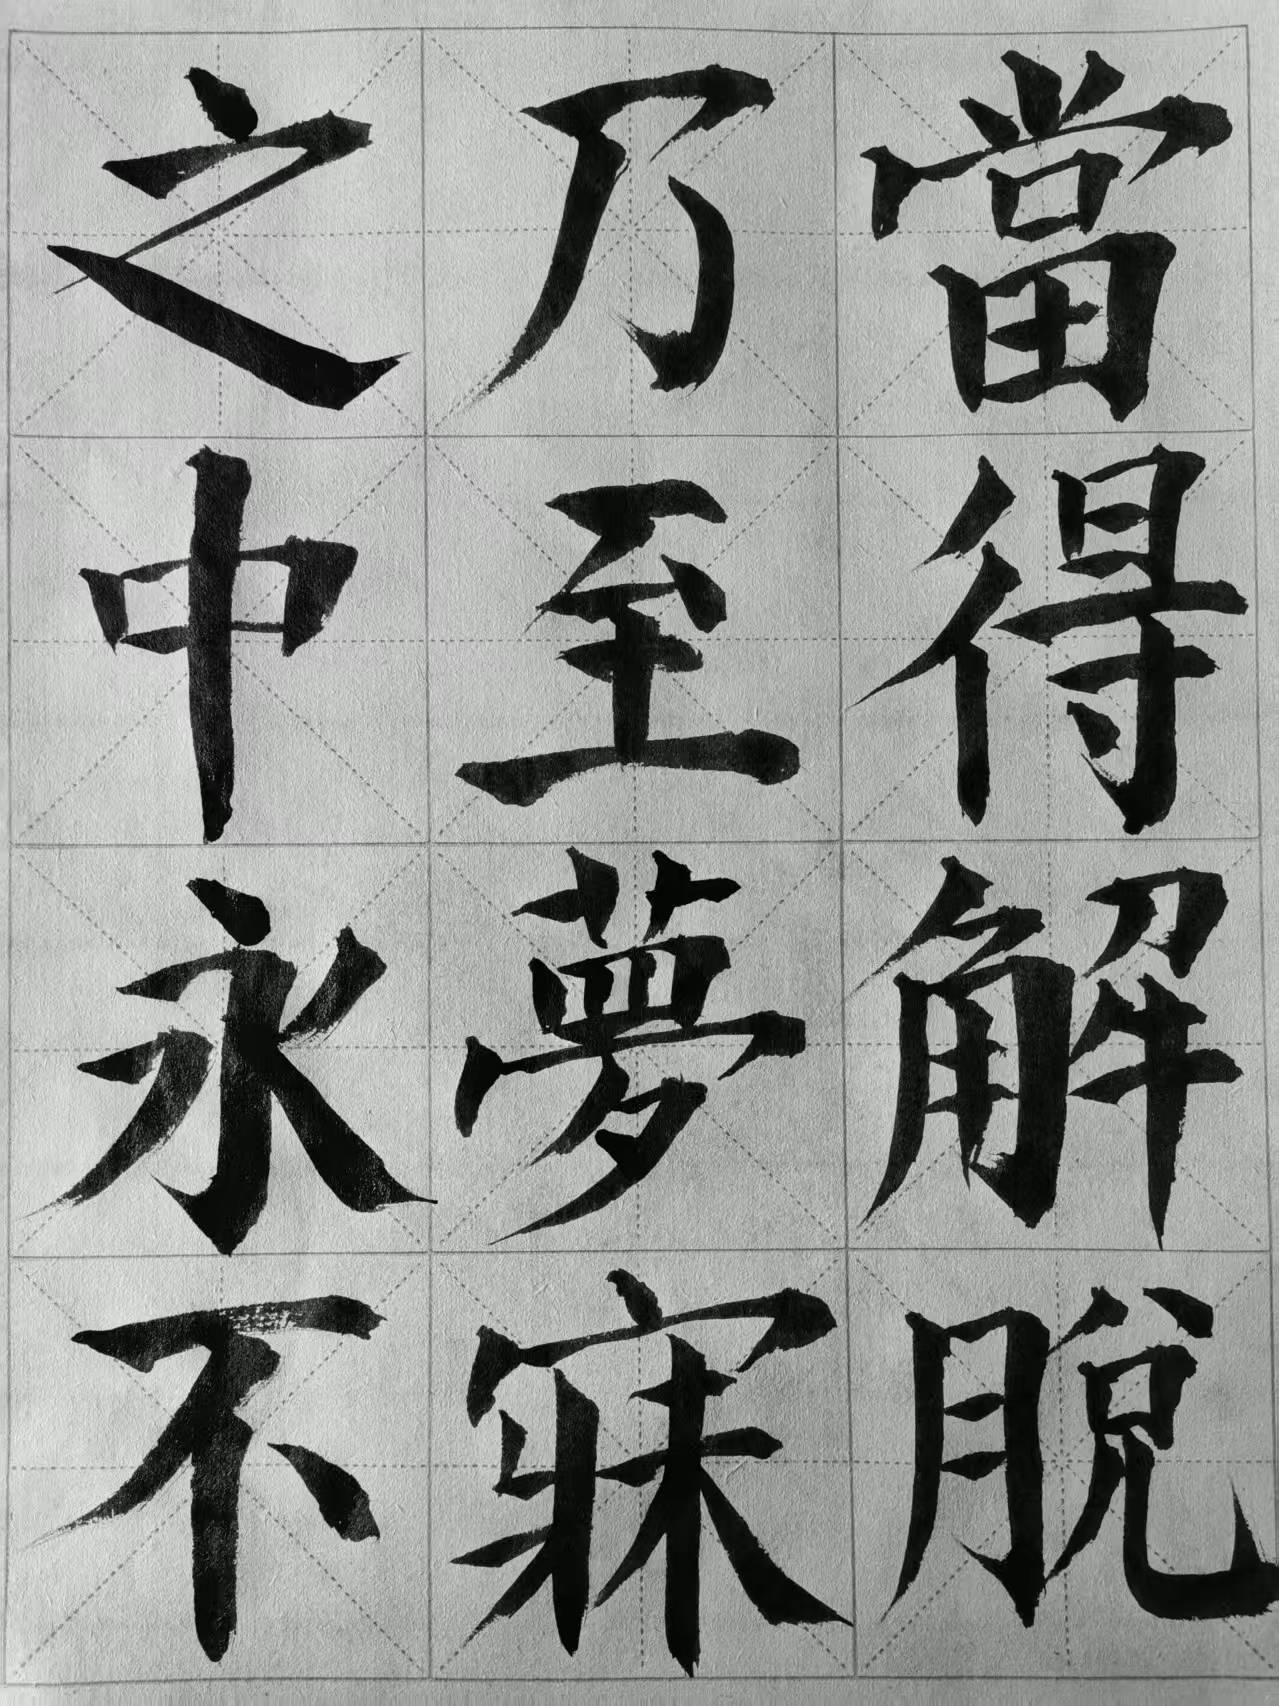 當得解脫
乃至夢寐
之中永不